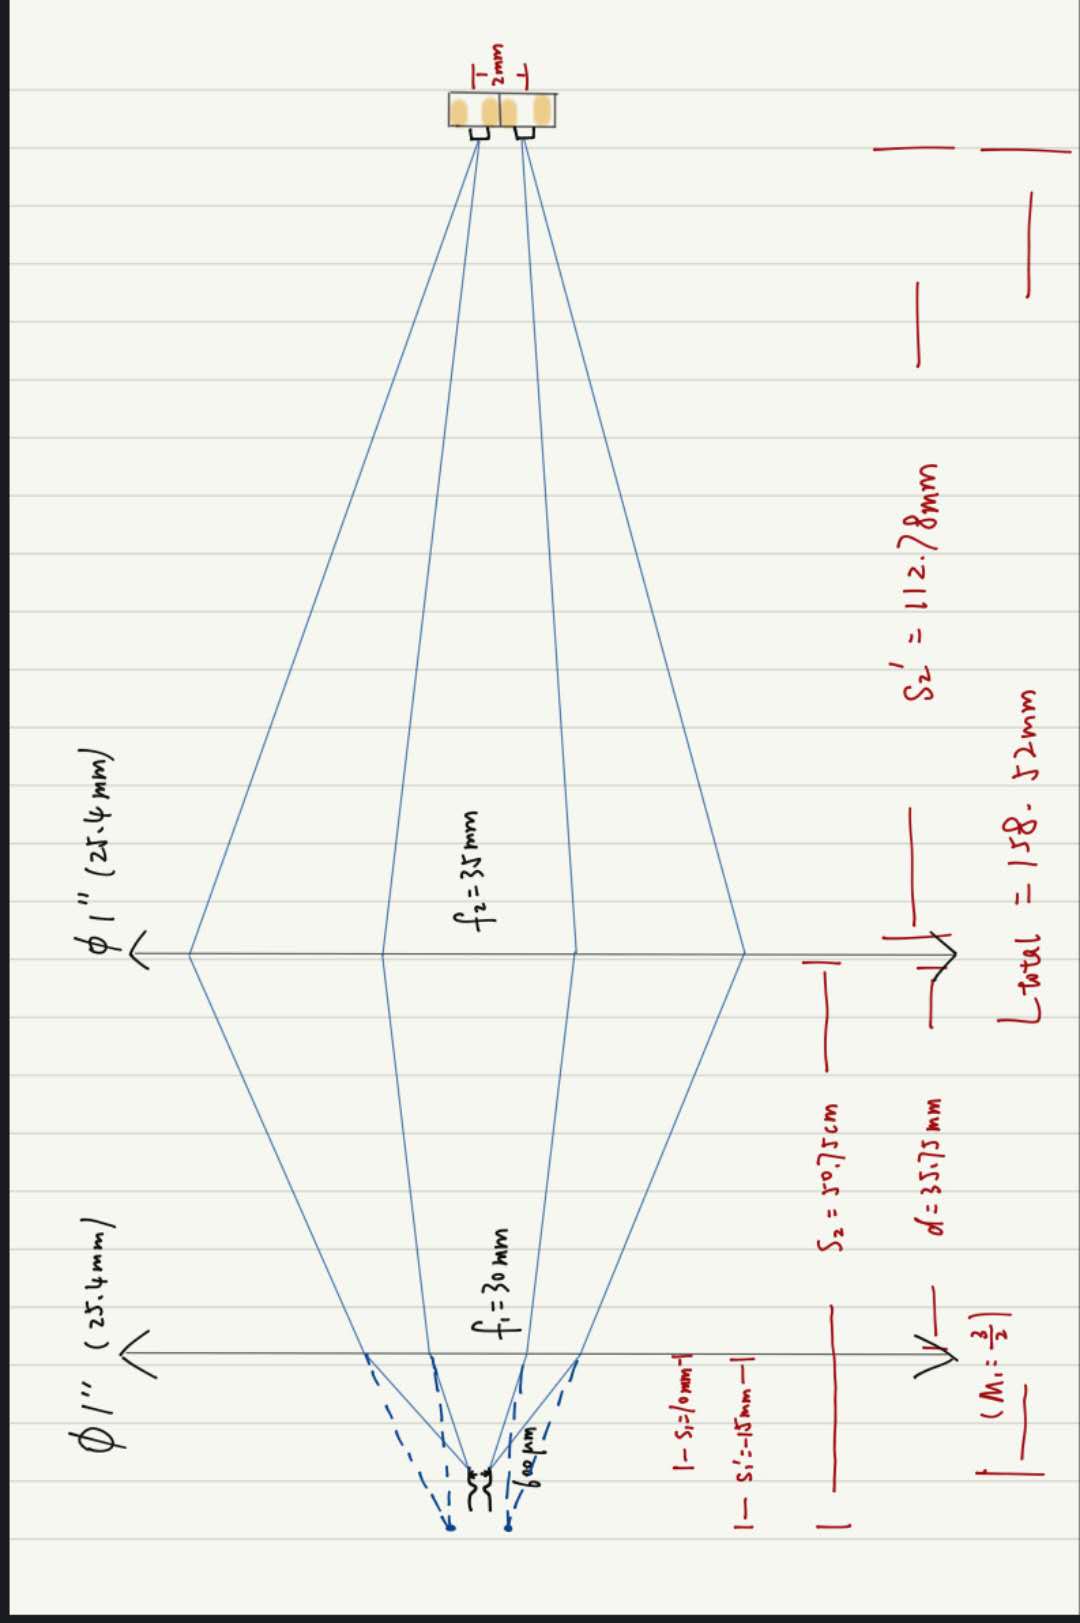 ϕ 1" (25.4mm)
ϕ 1" (25.4mm)
f₁=30mm
f₂=35mm
600μm
2mm
S₁=10mm
S₁'=-15mm
S₂ = 50.75cm
d=35.75mm
S₂' = 112.78mm
(M₁=3/2)
Ltotal = 158.52mm